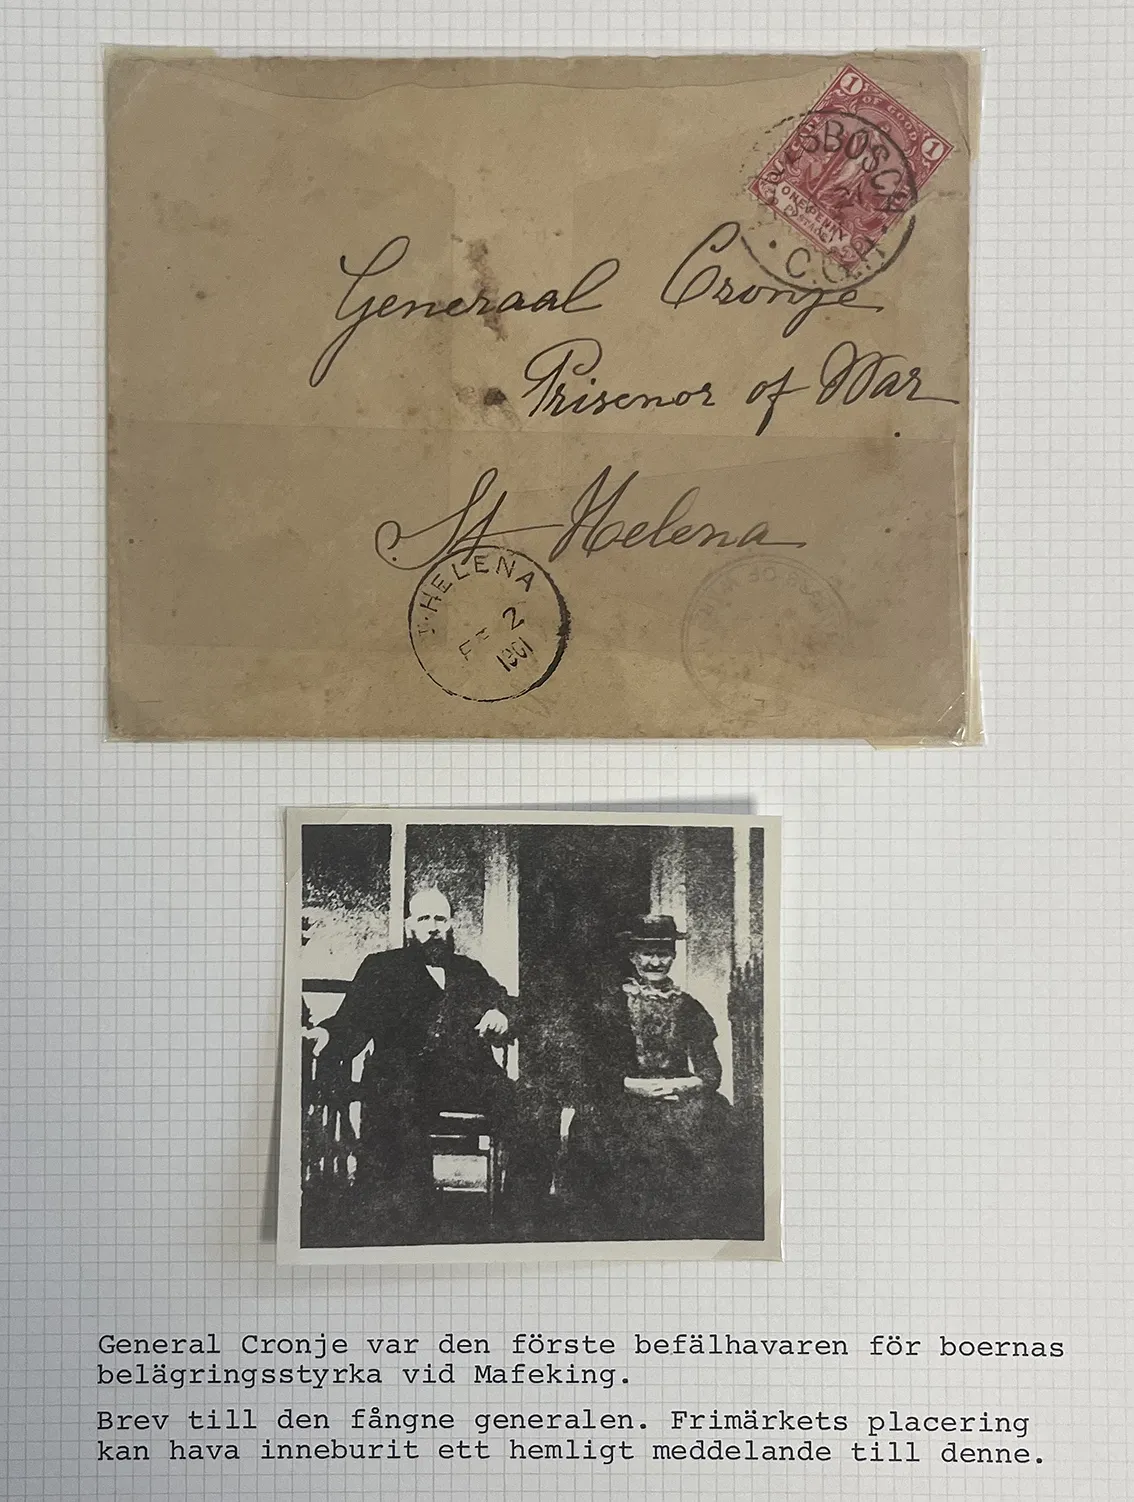 1 OF GOOD 1
ONE PENNY
POSTAGE
C.G.H.
Generaal Cronje
Prisenor of War
St Helena
HELENA
2
1901
RS OF
General Cronje var den förste befälhavaren för boernas
belägringsstyrka vid Mafeking.
Brev till den fångne generalen. Frimärkets placering
kan hava inneburit ett hemligt meddelande till denne.